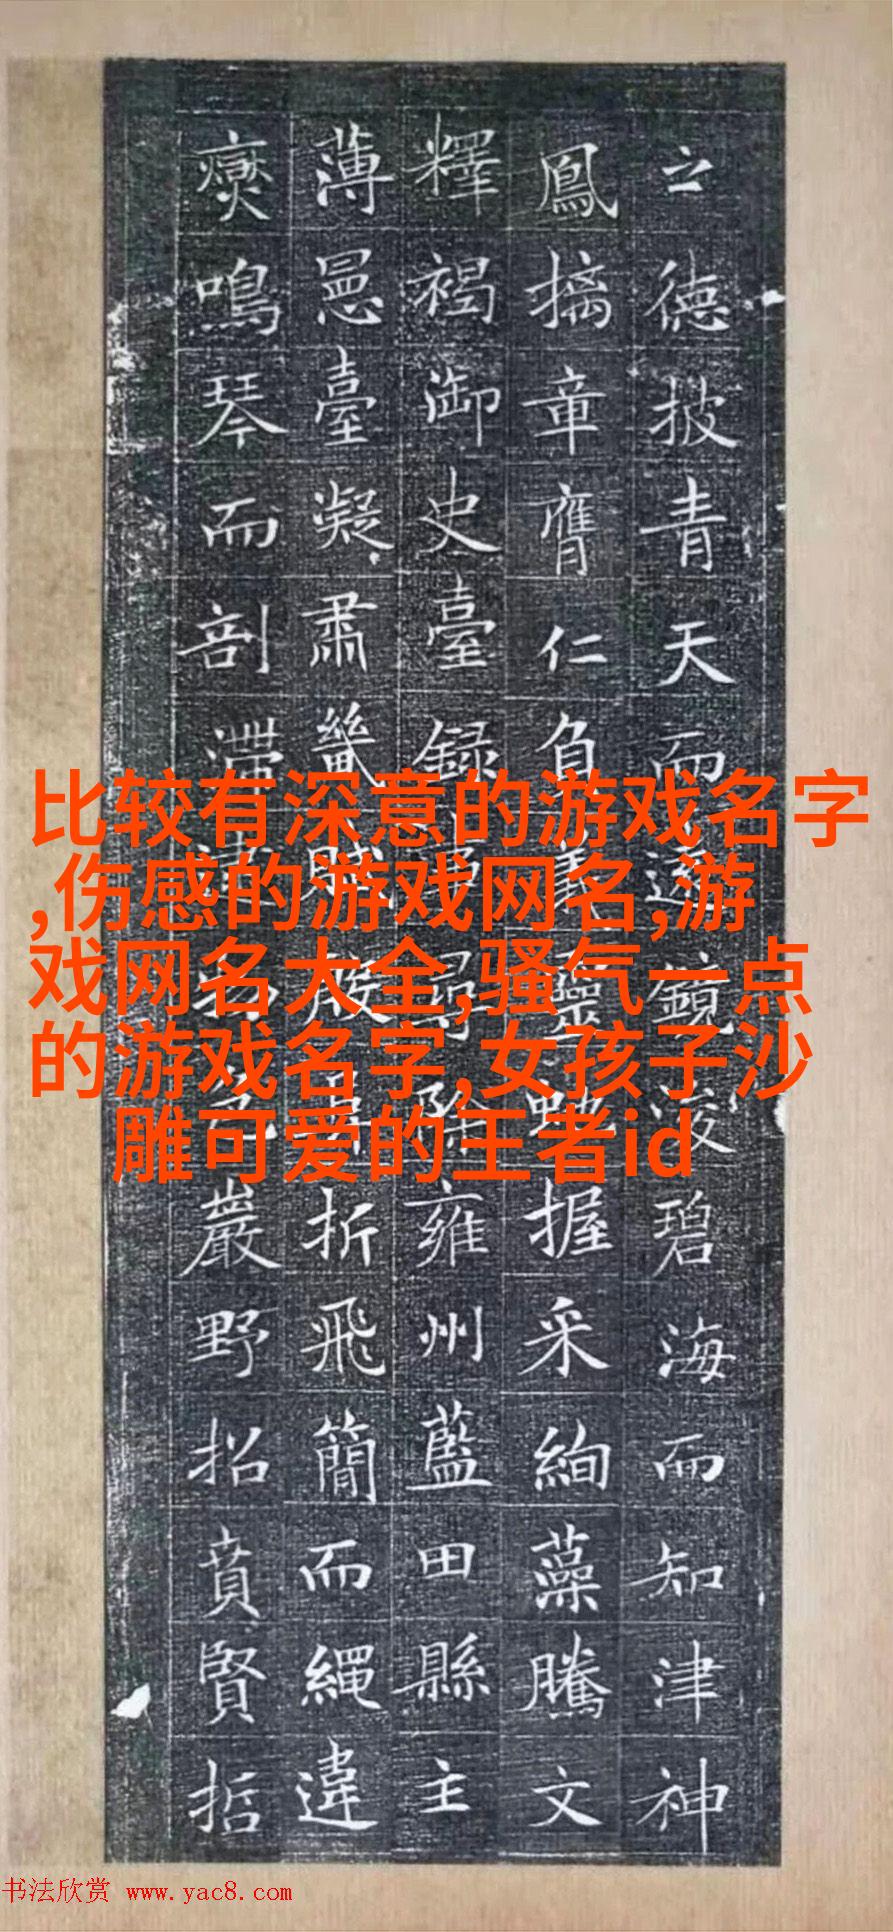 比较有深意的游戏名字
,伤感的游戏网名,游
戏网名大全,骚气一点
的游戏名字,女孩子沙
雕可爱的王者id
之德披青天而遠鏡浚碧海而知津神
鳳摛章膺仁負義靈虵握采絢藻騰文
釋褐御史臺録事尋除雍州藍田縣主
薄臺凝肅畿殷折飛簡而繩違
鳴琴而剖滯物色巖野招賁賢哲
书法欣赏 www.yac8.com